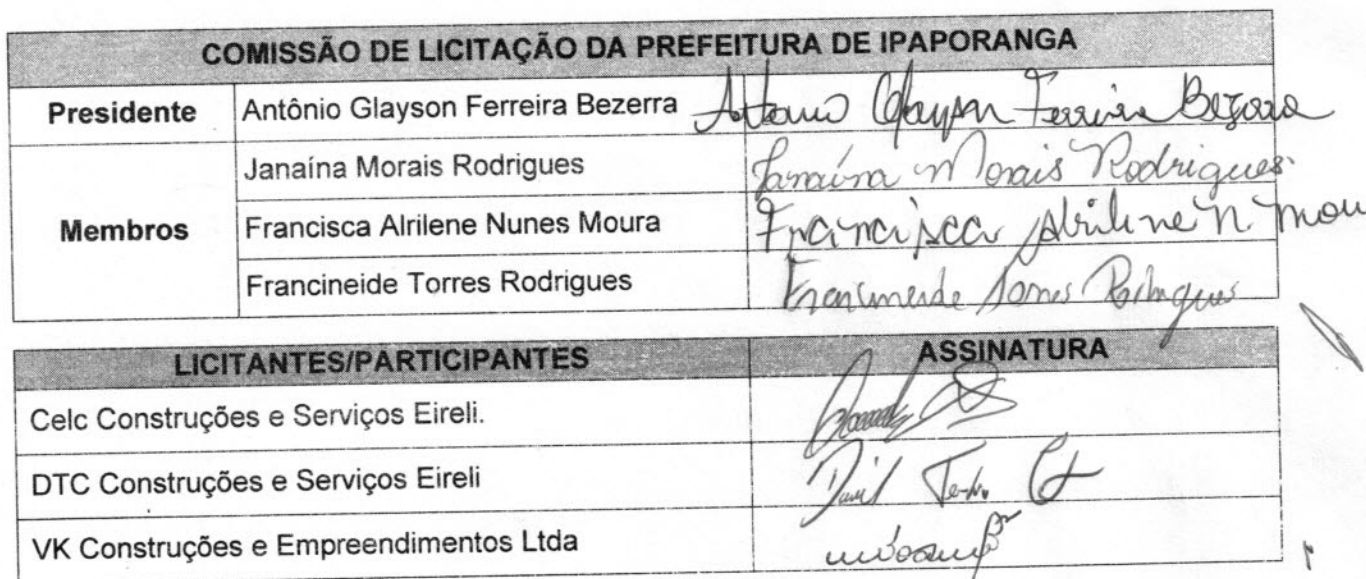 COMISSÃO DE LICITAÇÃO DA PREFEITURA DE IPAPORANGA
Presidente Antônio Glayson Ferreira Bezerra Antonio Glayson Ferreira Bezerra
Janaína Morais Rodrigues Janaína Morais Rodrigues
Membros Francisca Alrilene Nunes Moura Francisca Alrilene N. Mou
Francineide Torres Rodrigues Francineide Torres Rodrigues
LICITANTES/PARTICIPANTES ASSINATURA
Celc Construções e Serviços Eireli.
DTC Construções e Serviços Eireli
VK Construções e Empreendimentos Ltda